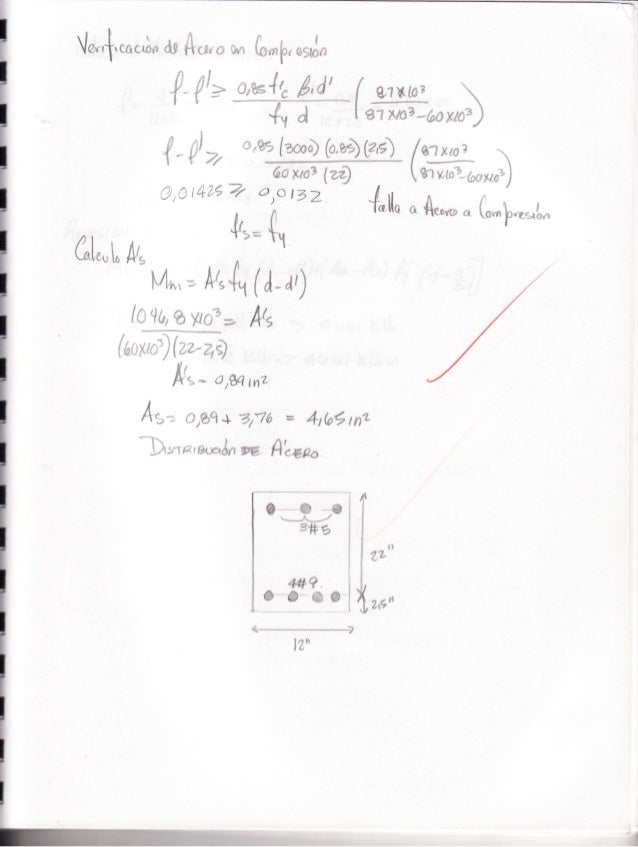 Verificación de Acero en Compresión
ρ-ρ' ≥ 0,85 f'c β1 d' / fy d (87x10³ / 87x10³-60x10³)
ρ-ρ' ≥ 0,85 (3000) (0.85) (2,5) / 60x10³ (22) (87x10³ / 87x10³-60x10³)
0,01425 ≥ 0,0132 falla a Acero a Compresión
f's = fy
Calculo A's
Mm = A's fy (d-d')
1046,8 x10³ / (60x10³)(22-2,5) = A's
A's = 0,89 in²
As = 0,89 + 3,76 = 4,65 in²
DISTRIBUCIÓN DE ACERO
3#5
22"
4#9
2,5"
12"